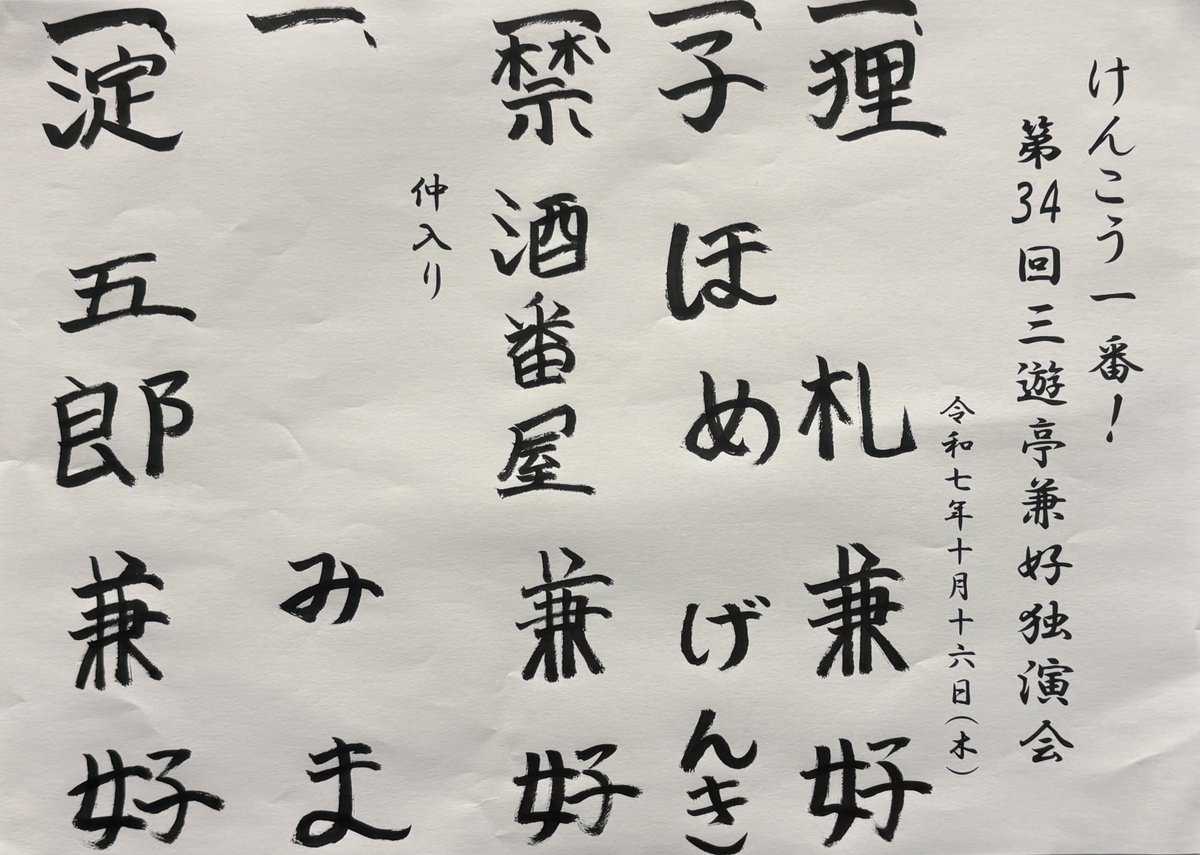 けんこう一番！
第34回三遊亭兼好独演会
令和七年十月十六日(木)
一、狸札 兼好
一、子ほめ げんき
一、禁酒番屋 兼好
仲入り
一、 みま
一、淀五郎 兼好